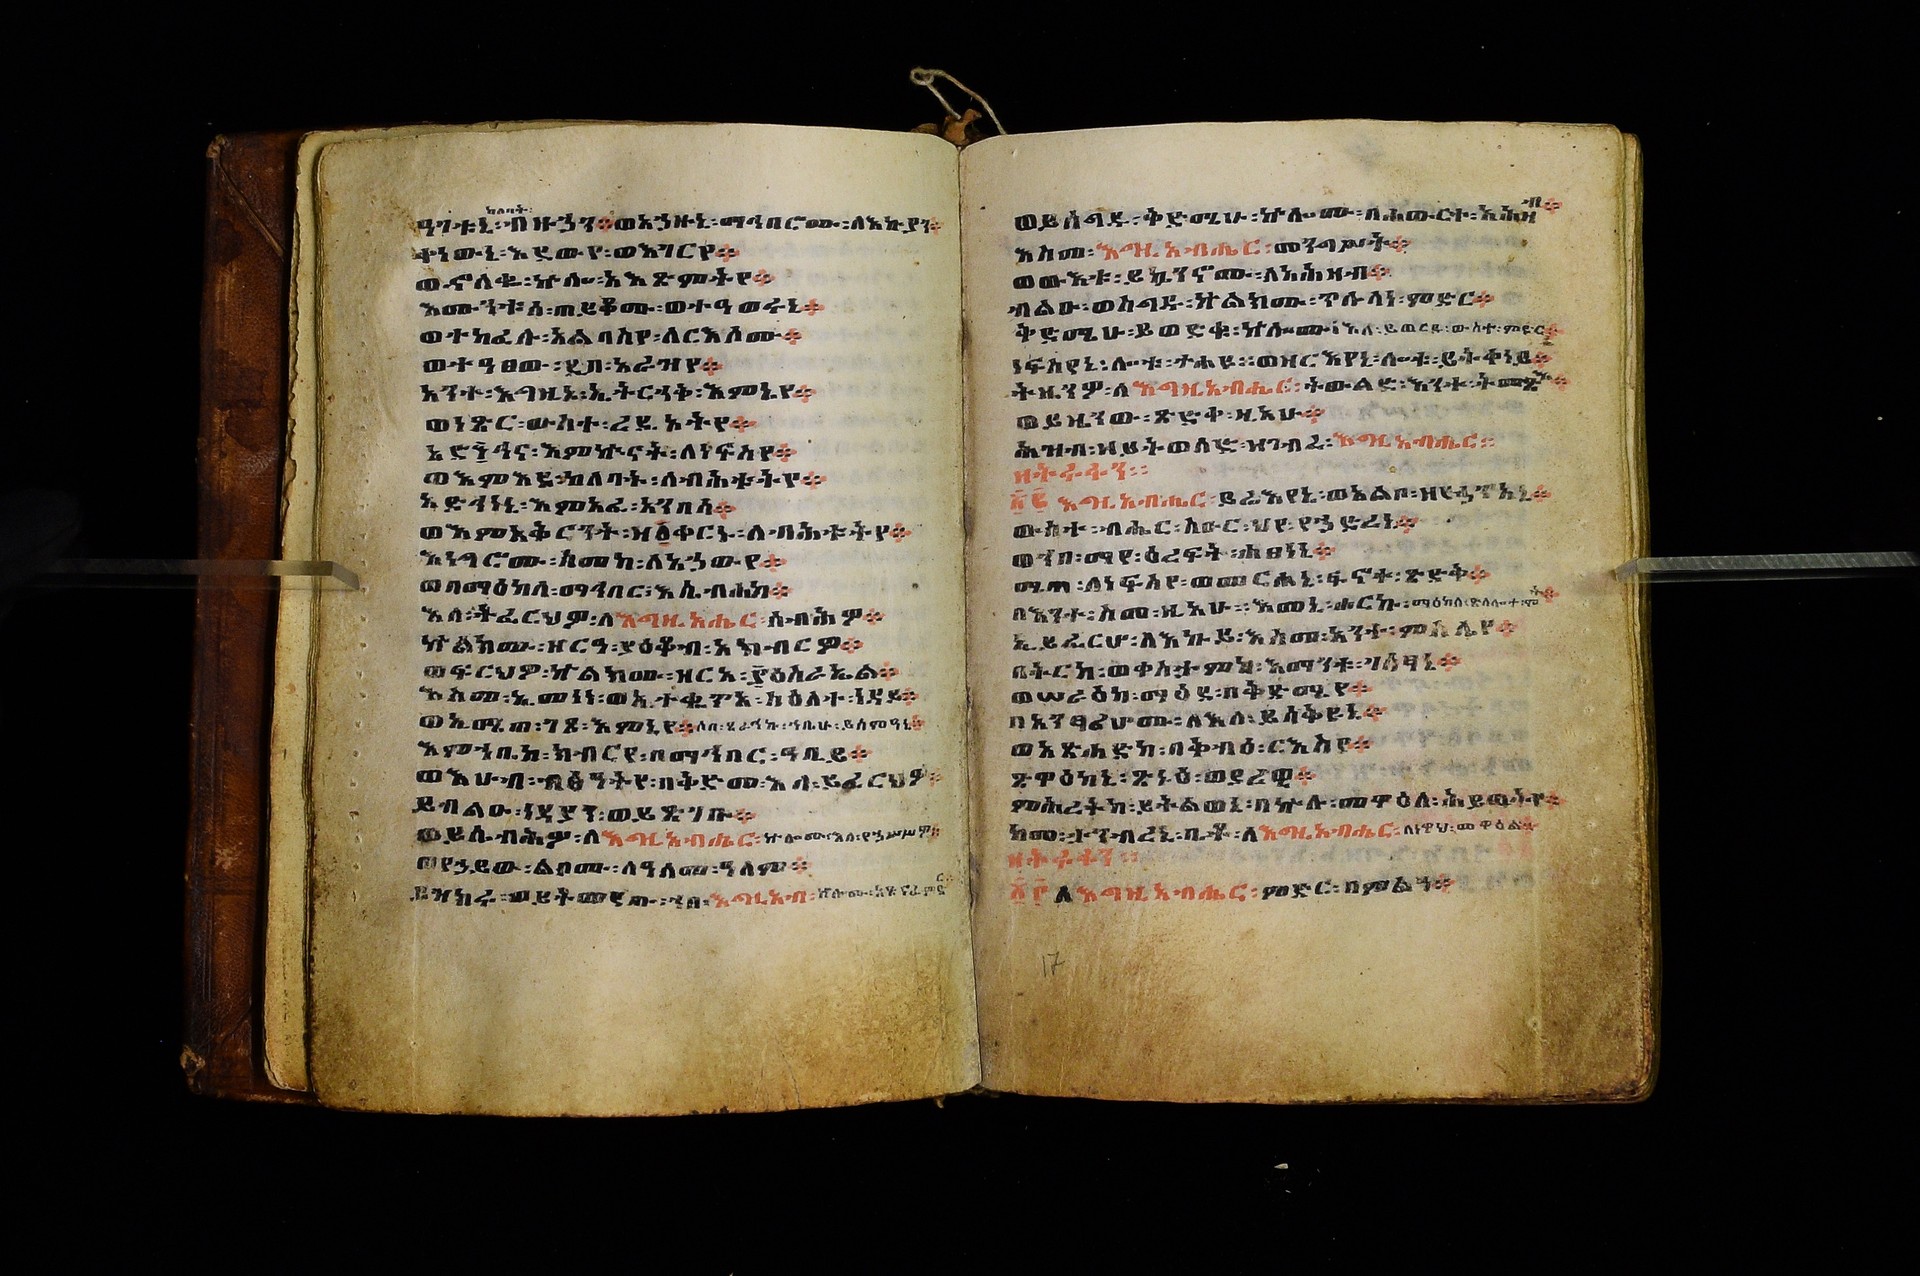 ከለባት፡
ዓገቱኒ፡ብዙኃን፨ወአኃዙኒ፡ማኅበሮሙ፡ለእኩያን፨
ቀነውኒ፡እደውየ፡ወእገርየ፨
ወኖለቁ፡ኵሎ፡አእጽምትየ፨
እሙንቱሰ፡ጠይቆሙ፡ወተዓወሩኒ፨
ወተከፈሉ፡አልባስየ፡ለርእሶሙ፨
ወተዓፀው፡ዲበ፡አራዝየ፨
አንተ፡እግዚኦ፡ኢትርኃቅ፡እምኔየ፨
ወነጽር፡ውስተ፡ረዲኦትየ፨
አድኅና፡እምኵናት፡ለነፍስየ፨
ወእምእደ፡ከለባት፡ለብሕቱትየ፨
አድኅነኒ፡እምአፈ፡አንበሳ፨
ወእምአቅርንት፡ዘ፩ቀርኑ፡ለብሕቱትየ፨
እነግሮሙ፡ስመከ፡ለአኃውየ፨
ወበማዕከለ፡ማኅበር፡እሴብሐከ፨
እለ፡ትፈርህዎ፡ለእግዚአሔር፡ሰብሕዎ፨
ኵልክሙ፡ዘርዓ፡ያዕቆብ፡አክብርዎ፨
ወፍርህዎ፡ኵልክሙ፡ዘርአ፡እስራኤል፨
እስመ፡ኢመነነ፡ወኢተቈጥአ፡ስዕለተ፡ነዳይ፨
ወኢሜጠ፡ገጸ፡እምኔየ፨ሶበ፡ጸራኅኩ፡ኀቤሁ፡ይሰምዓኒ፨
እምኀቤከ፡ክብርየ፡በማኅበር፡ዓቢይ፨
ወእሁብ፡ብፅዓትየ፡በቅድመ፡እለ፡ይፈርህዎ፨
ይብልዑ፡ነዳያን፡ወይጽገቡ፨
ወይሴብሕዎ፡ለእግዚአብሔር፡ኵሎሙ፡እለ፡የኃሥሥዎ፨
ወየኃይው፡ልቦሙ፡ለዓለመ፡ዓለም፨
ይዝክሩ፡ወይትመየጡ፡ኀበ፡እግዚአብ፡ኵሎሙ፡አጽናፈ፡ምድር፨
ወይሰግዱ፡ቅድሜሁ፡ኵሎሙ፡በሐውርተ፡አሕዛብ፨
እስመ፡እግዚአብሔር፡መንግሥት፨
ወውእቱ፡ይኴንኖሙ፡ለአሕዛብ፨
ብልዑ፡ወስግዱ፡ኵልክሙ፡ጥሉላነ፡ምድር፨
ቅድሜሁ፡ይወድቁ፡ኵሎሙ፡እለ፡ይወርዱ፡ውስተ፡ምድር፨
ነፍስየኒ፡ሎቱ፡ታሐዩ፡ወዘርእየኒ፡ሎቱ፡ይትቀነይ፨
ትዜንዎ፡ለእግዚአብሔር፡ትውልድ፡እንተ፡ትመጽእ፨
ወይዜንው፡ጽድቀ፡ዚአሁ፨
ሕዝብ፡ዘይትወለድ፡ዘገብረ፡እግዚአብሔር፡፡
ዘትፌፋን፡፡
፳፪ እግዚአብሔር፡ይሬእየኒ፡ወአልቦ፡ዘየኃጥአኒ፨
ውስተ፡ብሔር፡ስዑር፡ህየ፡የኃድረኒ፨
ወኀበ፡ማየ፡ዕረፍት፡ሐፀነኒ፨
ሜጣ፡ለነፍስየ፡ወመርሐኒ፡ፍኖተ፡ጽድቅ፨
በእንተ፡ስመ፡ዚአሁ፡እመኒ፡ሖርኩ፡ማዕከለ፡ጽላሎተ፡ሞት፨
ኢይፈርሆ፡ለእኩይ፡እስመ፡አንተ፡ምስሌየ፨
በትርከ፡ወቀስታምከ፡እማንቱ፡ገሠፃኒ፨
ወሠራዕከ፡ማዕደ፡በቅድሜየ፨
በአንፃሪሆሙ፡ለእለ፡ይሳቅዩኒ፨
ወአጽሐድከ፡በቅብዕ፡ርእስየ፨
ጽዋዕከኒ፡ጽኑዕ፡ወያረዊ፨
ምሕረትከ፡ይትልወኒ፡በኵሉ፡መዋዕለ፡ሕይወትየ፨
ከመ፡ታኅብረኒ፡ቤቶ፡ለእግዚአብሔር፡ለነዋህ፡መዋዕል፨
፳፫ለእግዚአብሔር፡ምድር፡በምልዓ፨
17